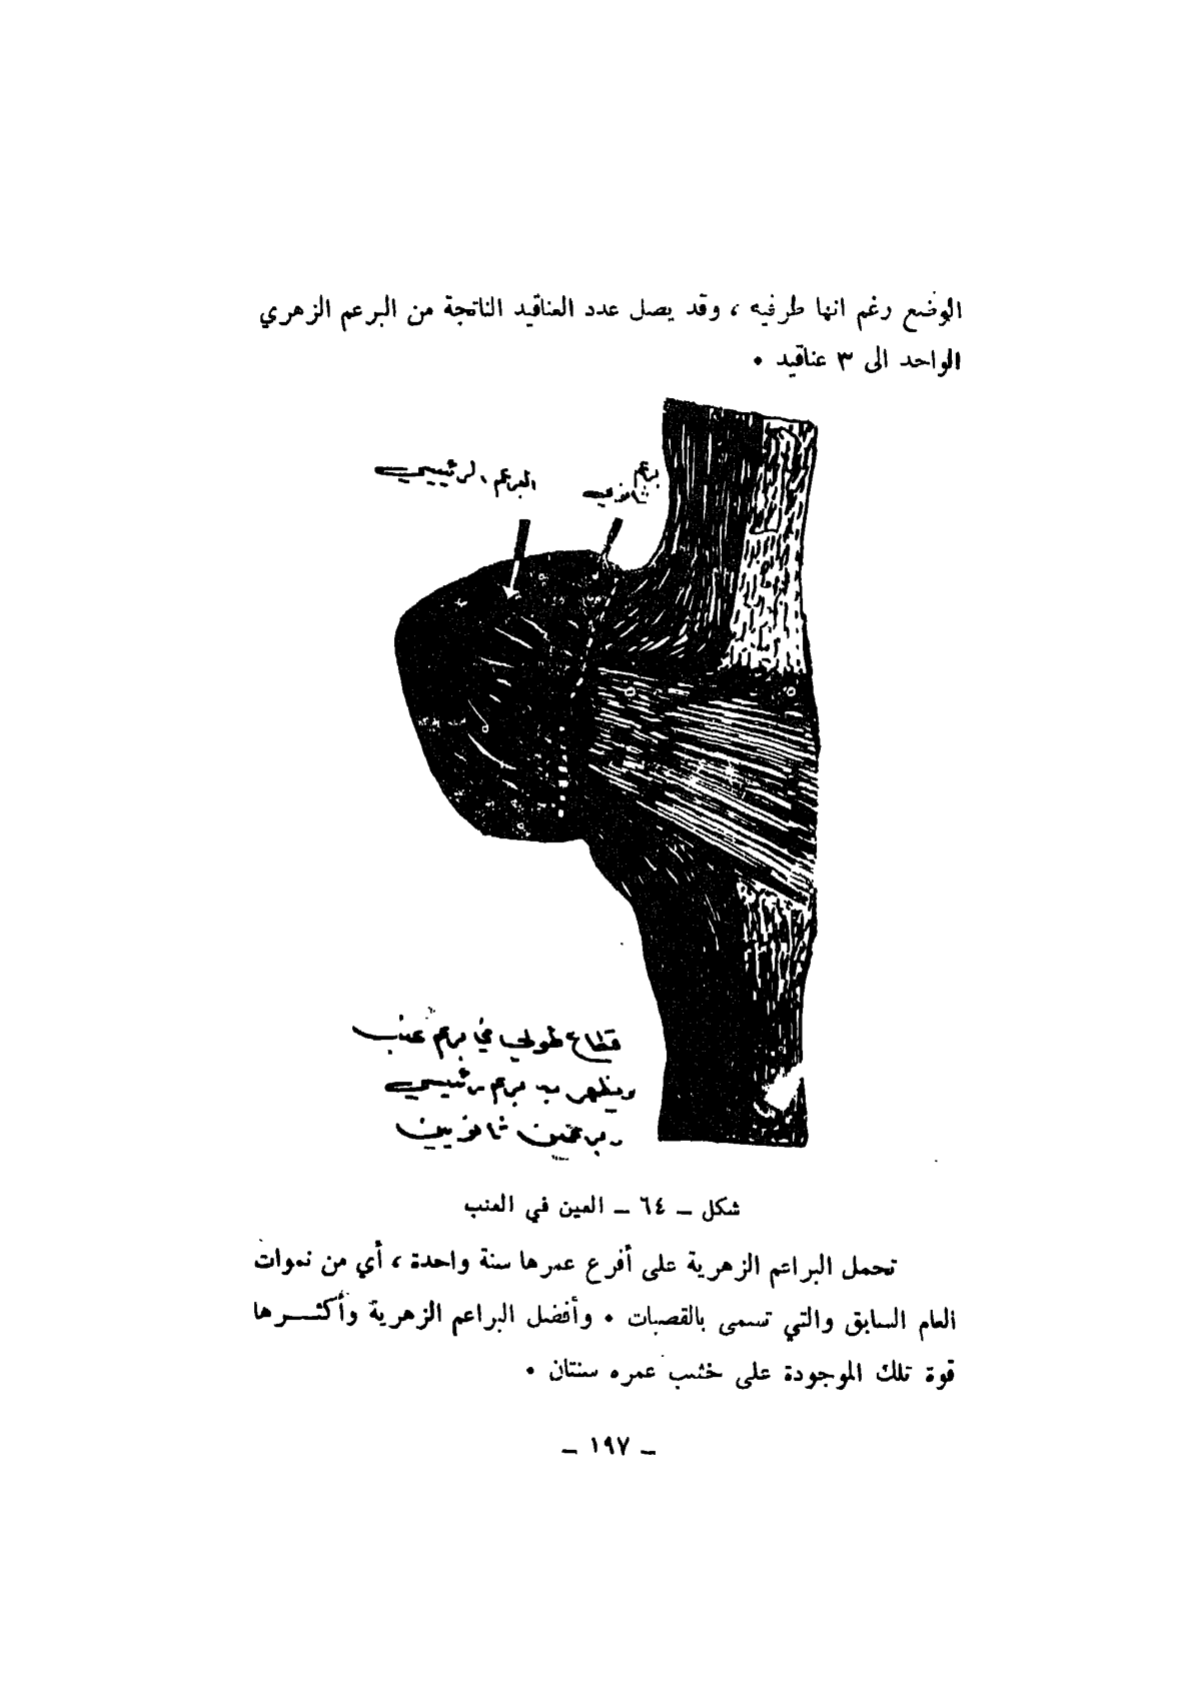 الوضع رغم انها طرفيه ، وقد يصل عدد العناقيد الناتجة من البرعم الزهري
الواحد الى ٣ عناقيد •
برعم
ثانوي
البرعم الرئيسي
قطاع طولي في برعم عنب
ويظهر به برعم رئيسي
وبرعمين ثانويين
شكل ــ ٦٤ ــ العين في العنب
تحمل البراعم الزهرية على أفرع عمرها سنة واحدة ، أي من نموات
العام السابق والتي تسمى بالقصبات • وأفضل البراعم الزهرية وأكثـــرها
قوة تلك الموجودة على خشب عمره سنتان •
ــ ١٩٧ ــ